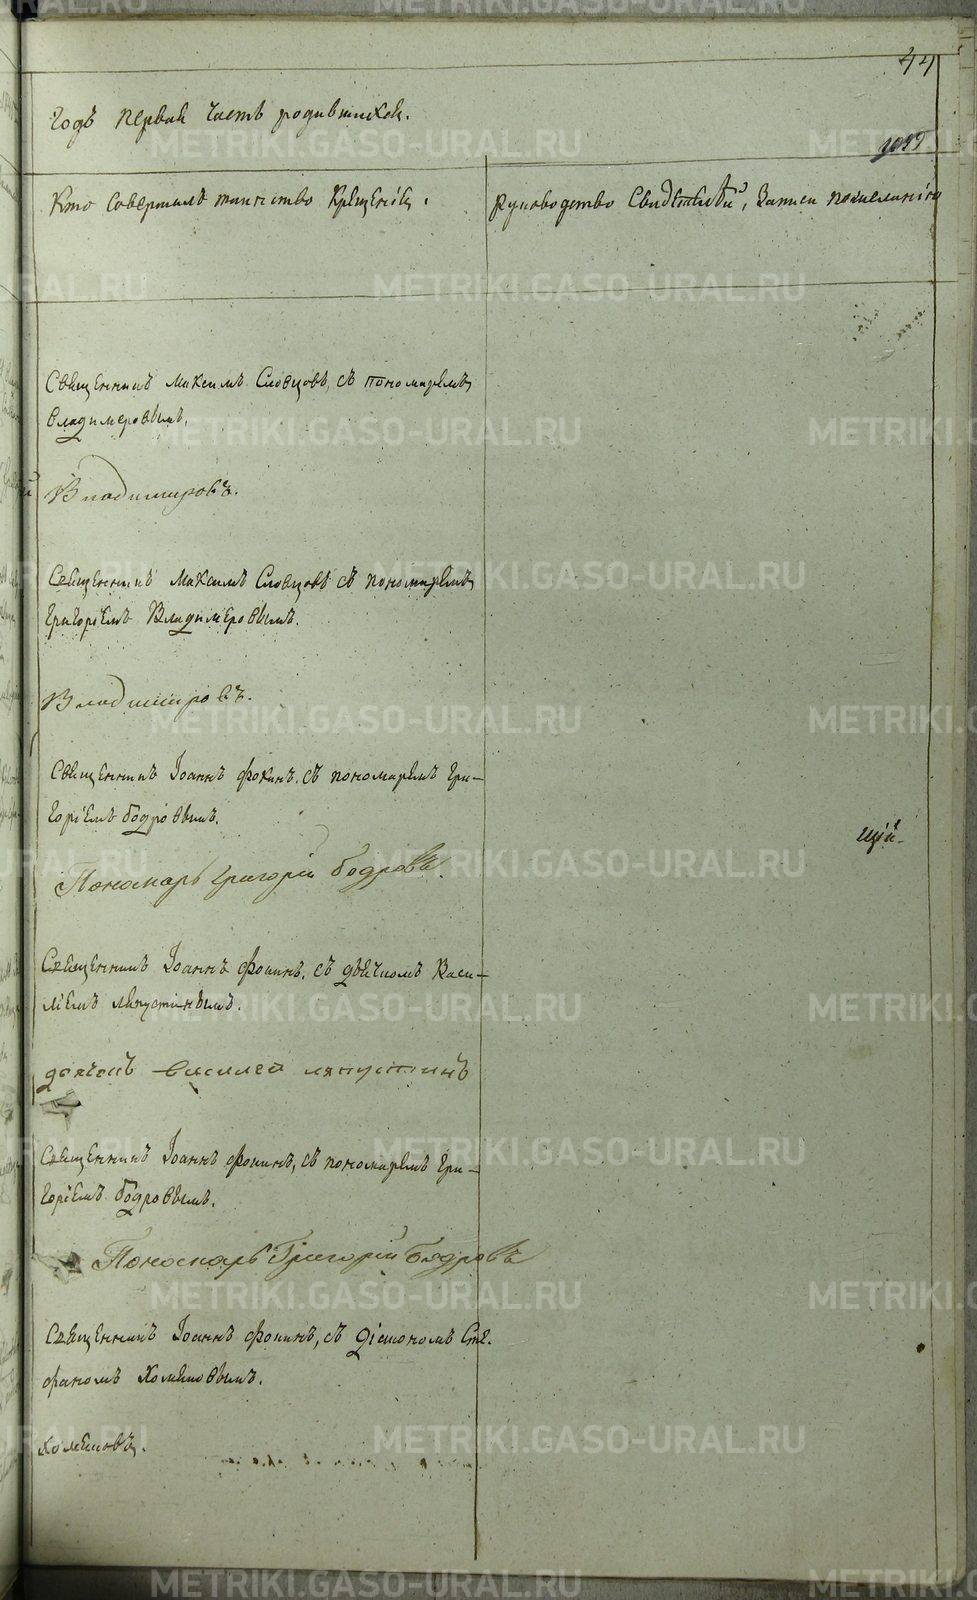 44
Годъ первая часть родившихся.
Кто совершилъ таинство крещенія.
Рукоприкладство свидѣтелей записи по желанію
Священникъ Максимъ Словцовъ, съ пономаремъ
Владимеровымъ.
Владимировъ.
Священникъ Максимъ Словцовъ съ пономаремъ
Григоріемъ Владимеровымъ.
Владимировъ.
Священникъ Іоаннъ Фокинъ, съ пономаремъ Гри-
горіемъ Бодровымъ.
Пономарь Григорій Бодровъ.
щій
Священникъ Іоаннъ Фокинъ, съ дьячкомъ Васи-
ліемъ Ляпустинымъ.
дьячокъ Василей Ляпустинъ
Священникъ Іоаннъ Фокинъ, съ пономаремъ Гри-
горіемъ Бодровымъ.
Пономарь Григорій Бодровъ
Священникъ Іоаннъ Фокинъ, съ діакономъ Сте-
фаномъ Хомяковымъ.
Хомяковъ.
METRIKI.GASO-URAL.RU